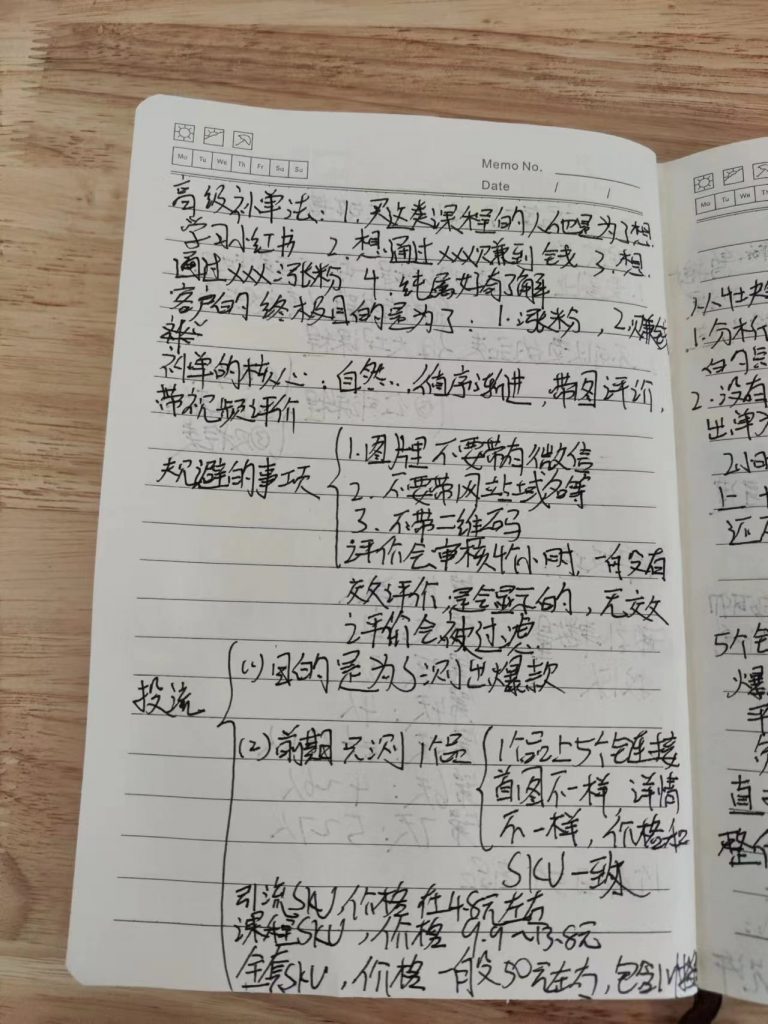 Mo Tu We Th Fr Sa Su
Memo No.
Date / /
高级补单法：1. 买这类课程的人他是为了想
学习小红书 2. 想通过xxx赚到钱 3. 想
通过xxx涨粉 4. 纯属好奇了解
客户的终极目的是为了：1. 涨粉，2. 赚钱
补单的核心：自然..，循序渐进，带图评价，
带视频评价
规避的事项
1. 图片里不要带有微信
2. 不要带网站域名等
3. 不带二维码
评价会审核4个小时，一般没有
效评价，是会显示的，无效
评价会被过滤
投流
(1) 目的是为了测出爆款
(2) 前期只测1个品
1个品上5个链接
首图不一样 详情
不一样，价格和
SKU一致
引流SKU，价格在4.8元左右
课程SKU，价格 9.9~13.8元
全套SKU，价格一般50元左右，包含
Mo Tu We Th
1. 分析
2. 没有
出单
2小时
5个
爆
平
直
整个